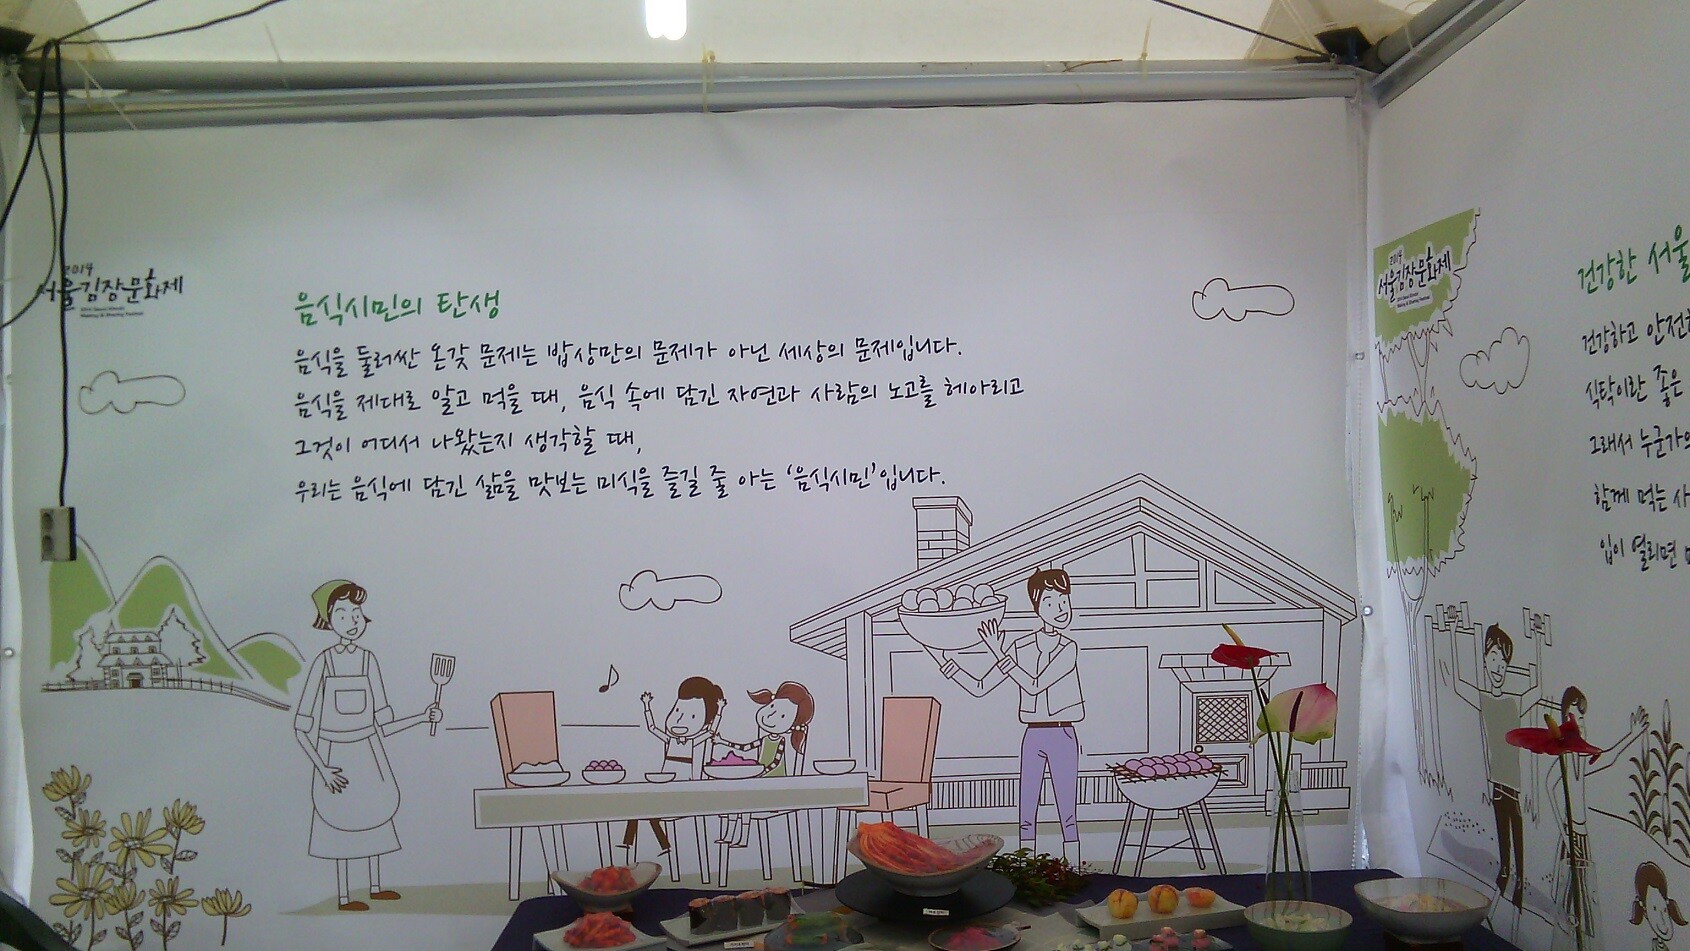 2014
서울김장문화제
음식시민의 탄생
음식을 둘러싼 온갖 문제는 밥상만의 문제가 아닌 세상의 문제입니다.
음식을 제대로 알고 먹을 때, 음식 속에 담긴 자연과 사람의 노고를 헤아리고
그것이 어디서 나왔는지 생각할 때,
우리는 음식에 담긴 삶을 맛보는 미식을 즐길 줄 아는 '음식시민'입니다.
2014
서울김장문화제
건강한 서울
건강하고 안전한
식탁이란 좋은
그래서 누군가의
함께 먹는
입이 열리면